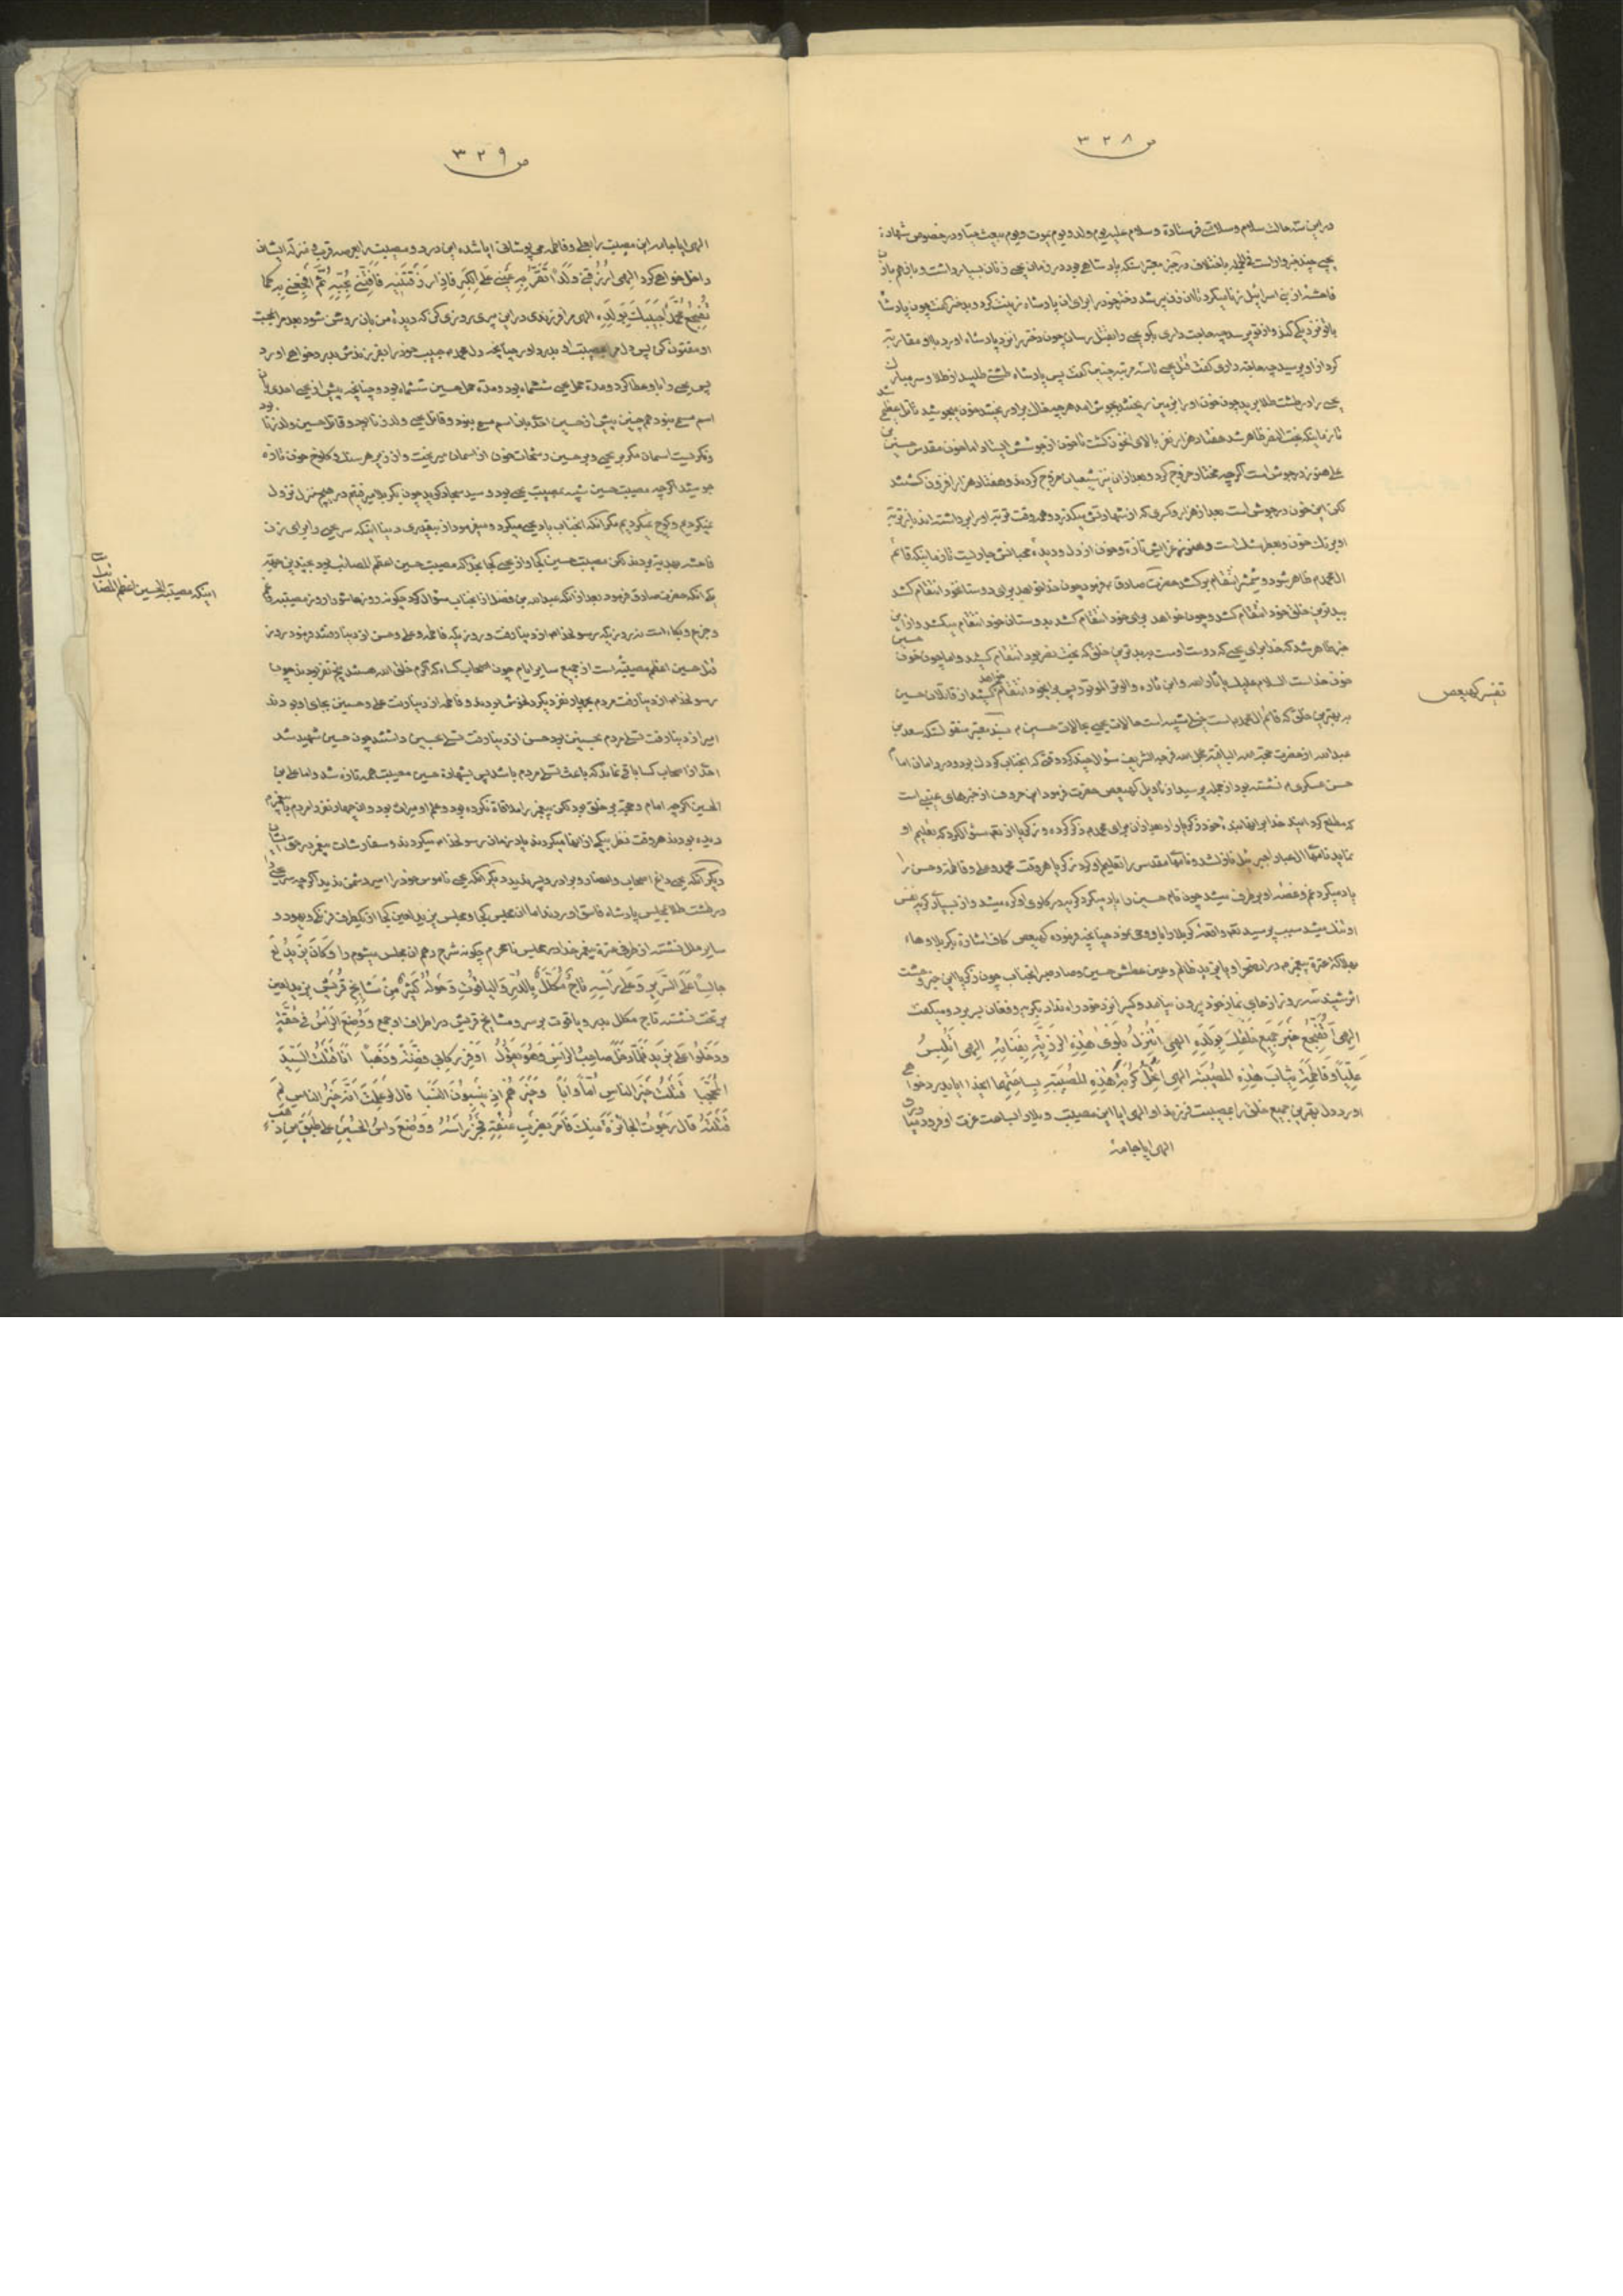 ص ٣٢٨
در این سه حالت سلام و سلامتی فرستاده و سلام علیه یوم ولد و یوم یموت و یوم یبعث حیا و در خصوص شهادة
یحیی چند خبر وارد است
فاحشه از بنی اسرائیل زنا میکرد تا ان زن پیر شد دختر خود را برای ان پادشاه زینت کرد و بدختر گفت چون پادشا
با تو نزدیکی کند و از تو پرسد چه حاجت داری بگو یحیی را بقتل رسان چون دختر را نزد پادشاه اورد با او مقاربت
کرد از او پرسید چه حاجة داری گفت قتل یحیی تا سه مرتبه چنین گفت پس پادشاه طشتی طلبید از طلا و سر مبارک
یحیی را در طشت طلا برید چون خون او را بر زمین ریختند بجوش امد هر چه خاک بر او ریختند خون میجوشید تا تل عظیمی شد
تا زمانیکه بخت النصر ظاهر شد هفتاد هزار نفر بالای انخون کشت تا خون از جوشش ایستاد اما خون مقدس حسین بن
علی هنوز در جوش است اگرچه مختار خروج کرد و بعد از ان نیز شیعیان خروج کردند و هفتاد هزار افزون کشتند
لکن این خون در جوش است بعد از هزار و کسری که از شهادتش میگذرد و همه وقت تربة او را برداشته اند باز تربة
او برنک خون و بعطر مشک است و هنوز عزایش تازه و خون از دل و دیده محبانش جاریست تا زمانیکه قائم
ال محمد ظاهر شود و شمشیر انتقام برکشد حضرت صادق فرمود چون خدا خواهد برای دوستان خود انتقام کشد
ببدترین خلق خود انتقام کشد و چون خواهد برای خود انتقام کشد بدوستان خود انتقام میکشد و از این
خبر ظاهر شد که خدا برای یحیی که دوست اوست ببدترین خلق که بخت نصر بود انتقام کشید و اما چون خون حسین
خون خداست السلام علیک یا ثار الله و ابن ثاره و الوتر الموتور پس برای خود انتقام خواهد کشید از قاتلان حسین
به بهترین خلق که قائم ال محمد است خیلی شبیه است حالات یحیی بحالات حسین و بسند معتبر منقولست که سعد بن
عبدالله از حضرت حجة الله الباقیة عجل الله فرجه الشریف سؤالاتی چند کرد در وقتی که انجناب کودک بود و در دامان امام
حسن عسکری نشسته بود از جمله پرسید از تاویل کهیعص حضرت فرمود این حروف از خبرهای غیبی است
که مطلع گردانید خدا بر انها بنده خود زکریا را و بعد از ان برای محمد ذکر کرده و زکریا از حق سؤال کرد که تعلیم او
نماید نامهای ال عبا را جبرئیل نازل شد و نامهای مقدس را تعلیم او کرد زکریا هر وقت محمد و علی و فاطمه و حسن را
یاد میکرد غم و غصه او برطرف میشد چون نام حسین را یاد میکرد گریه در گلوی او گره میشد و از بسیاری گریه نفس
او تنک میشد سبب پرسید حق واقعه کربلا را باو وحی نمود چنانچه فرموده کهیعص کاف اشارة بکربلا و هاء
بهلاکة عترة پیغمبر در انصحرا و یا بیزید ظالم و عین عطش حسین و صاد صبر انجناب چون زکریا این خبر وحشت
اثر شنید سه روز از جای نماز خود بیرون نیامد و کسی را نزد خود راه نداد بگریه و فغان بسر برد و میگفت
الهی اتفجع خیر جمیع خلقک بولده الهی اتنزل بلوی هذه الرزیة بفنائه الهی اتلبس
علیا و فاطمة ثیاب هذه المصیبة الهی اتحل کربة هذه المصیبة بساحتهما ایخدا ایا بدرد خواهی
اورد دل بهترین جمیع خلق را بمصیبت فرزند او الهی ایا این مصیبت و بلا را بساحت عزت او فرود میاوری
الهی ایا جامه
تفسیر کهیعص
ص ٣٢٩
الهی ایا جامه این مصیبت را بعلی و فاطمه می پوشانی ایا شدة این درد و مصیبت را بعرصه قرب و منزلة ایشان
داخل خواهی کرد الهی ارزقنی ولدا تقر به عینی علی الکبر فاذا رزقتنیه فافتنی بحبه ثم افجعنی به کما
تفجع محمدا حبیبک بولده الهی مرا فرزندی در این پیری روزی کن که دیده من بان روشن شود بعد مرا بمحبت
او مفتون کن پس دل مرا بمصیبت او بدرد اور چنانچه دل محمد حبیب خود را بفرزندش بدرد خواهی اورد
پس یحیی را باو عطا کرد و مدة حمل یحیی ششماه بود و مدة حمل حسین ششماه بود و چنانچه پیش از یحیی احدی بان
اسم مسمی نبود همچنین پیش از حسین احدی بان اسم مسمی نبود و قاتل یحیی ولد زنا بود و قاتل حسین ولد زنا بود
و نگریست اسمان مگر بر یحیی و بر حسین و رشحات خون از اسمان میریخت و از زیر هر سنک و کلوخ خون تازه
میجوشید اگرچه مصیبت حسین شبیه بمصیبت یحیی بود و سید سجاد گوید چون بکربلا میرفتیم در هیچ منزل نزول
نمیکردیم و کوچ نمیکردیم مگر انکه انجناب یاد یحیی میکرد و میفرمود از بیقدری دنیا اینکه سر یحیی را برای زن
فاحشه بهدیه بردند لکن مصیبت حسین کجا و از یحیی کجا بجهة انکه مصیبت حسین اعظم المصائب بود بچندین جهة
یکی انکه حضرت صادق فرمود بعد از انکه عبدالله بن فضل از انجناب سؤال کرد چگونه روز عاشورا روز مصیبة و غم
و جزع و بکاء است نه روزیکه رسولخدا از دنیا رفت و روزیکه فاطمه و علی و حسن از دنیا رفتند فرمود روز
قتل حسین اعظم مصیبة است از جمیع سایر ایام چون اصحاب کساء که اکرم خلق الله هستند پنج نفر بودند چون
رسولخدا از دنیا رفت مردم بچهار نفر دیگر دلخوش بودند و فاطمه از دنیا رفت علی و حسنین بجای او بودند
امیر از دنیا رفت تسلی مردم بحسنین بود حسن از دنیا رفت تسلی بحسین داشتند چون حسین شهید شد
احدی از اصحاب کسا باقی نماند که باعث تسلی مردم باشد پس بشهادة حسین مصیبت همه تازه شد و اما علی بن
الحسین اگرچه امام و حجة بر خلق بود لکن پیغمبر را ملاقاة نکرده بود و علم او میراث بود و ان چهار نفر را مردم با پیغمبر
دیده بودند هر وقت نظر بیکی از انها میکردند یاد زمان رسولخدا میکردند و سفارشات پیغمبر در حق ایشان
دیگر انکه یحیی داغ اصحاب و انصار و برادر و پسر ندید و دیگر انکه یحیی ناموس خود را اسیر دشمن ندید اگرچه سر یحیی را
در طشت طلا بمجلس پادشاه فاسق اوردند اما ان مجلس کجا و مجلس یزید لعین کجا از یکطرف فرنگی و یهود و
سایر ملل نشسته از طرفی عترة پیغمبر خدا در مجلس نامحرم چگونه شرح دهم ان مجلس میشوم را و کان یزید لع
جالسا علی السریر و علی راسه تاج مکلل بالدر و الیاقوت و حوله کثیر من مشایخ قریش یزید لعین
بر تخت نشسته تاج مکلل بدر و یاقوت بر سر و مشایخ قریش در اطراف او جمع و وضع الراس فی حقة
و دخلوا علی یزید فلما دخل صاحب الراس و هو یقول اوقر رکابی فضة و ذهبا انا قتلت السید
المحجبا قتلت خیر الناس اما و ابا و خیرهم اذ ینسبون النسبا قال لو علمت انه خیر الناس لم
قتلته قال رجوت الجائزة منک فامر بضرب عنقه فجز راسه و وضع راس الحسین علی طبق من ذهب
اینکه مصیبة الحسین اعظم المصائب بوده است